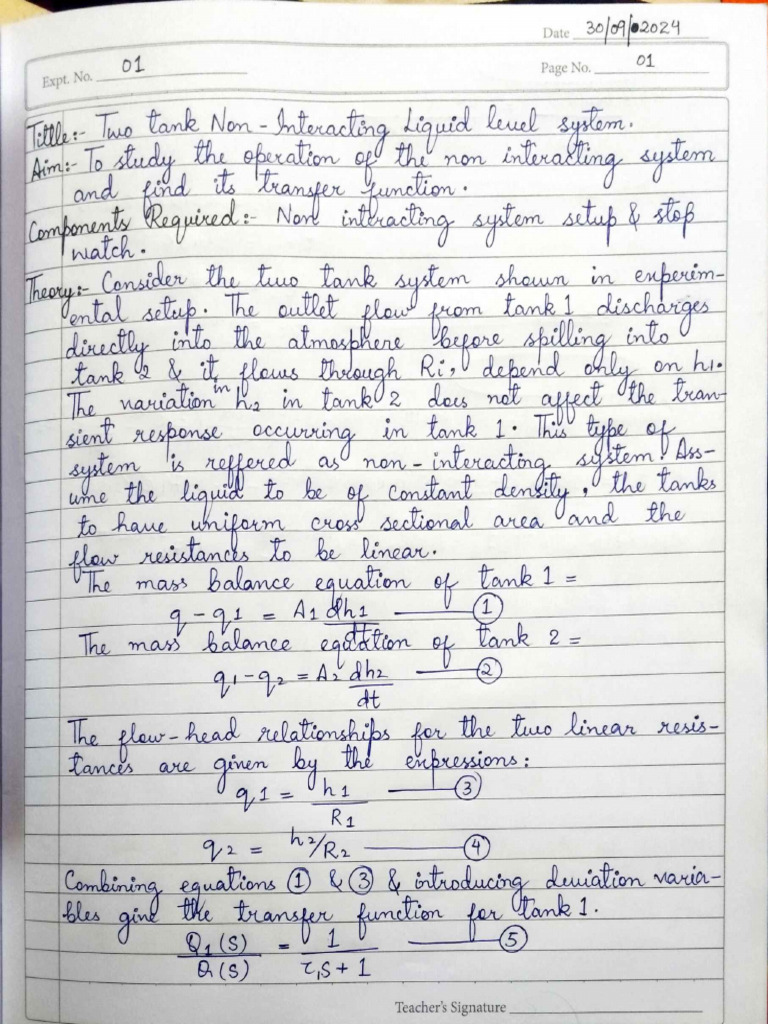 Date 30/09/2024
Expt. No. 01
Page No. 01
Tittle:- Two tank Non-Interacting Liquid level system.
Aim:- To study the operation of the non interacting system
and find its transfer function.
Components Required:- Non interacting system setup & stop
watch.
Theory:- Consider the two tank system shown in experim-
ental setup. The outlet flow from tank 1 discharges
directly into the atmosphere before spilling into
tank 2 & it flows through Ri, depend only on h1.
The variation in h2 in tank 2 does not affect the tran-
sient response occurring in tank 1. This type of
system is reffered as non-interacting system. Ass-
ume the liquid to be of constant density, the tanks
to have uniform cross sectional area and the
flow resistances to be linear.
The mass balance equation of tank 1 =
q - q1 = A1 dh1/dt ——— ①
The mass balance equation of tank 2 =
q1 - q2 = A2 dh2/dt ——— ②
The flow-head relationships for the two linear resis-
tances are given by the expressions:
q1 = h1/R1 ——— ③
q2 = h2/R2 ——— ④
Combining equations ① & ③ & introducing deviation varia-
bles give the transfer function for tank 1.
Q1(S)/Q(S) = 1/τ1S + 1 ——— ⑤
Teacher's Signature